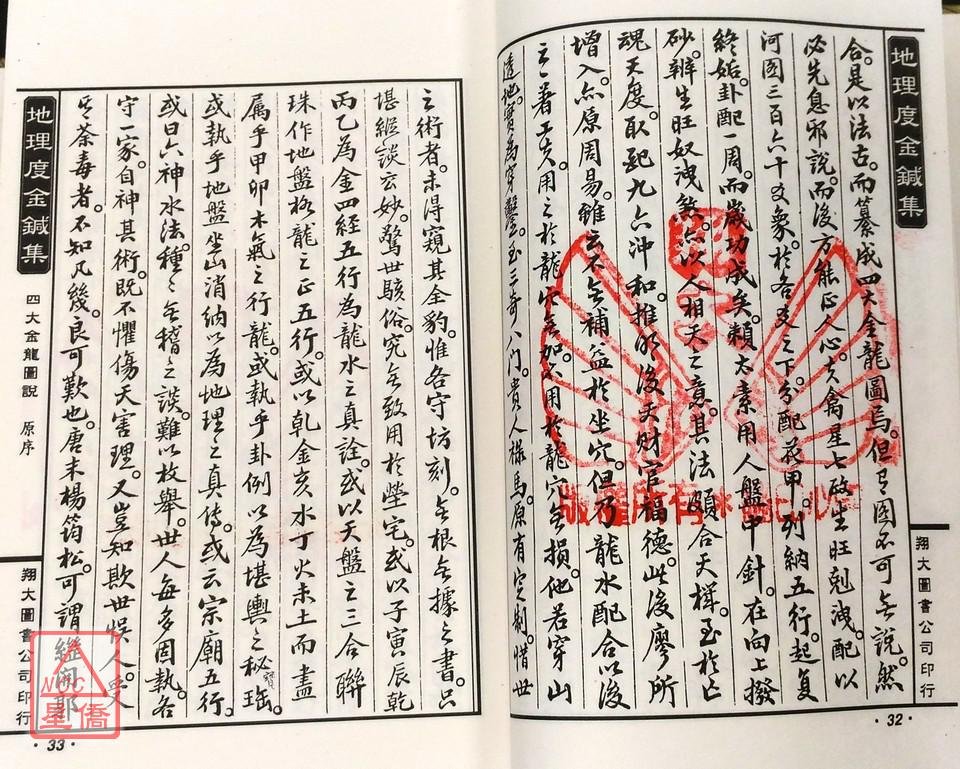 地理度金鍼集
合。是以法古。而纂成四大金龍圖焉。但是圖不可無說。然
必先息邪說。而後方能正人心。夫禽星七政生旺剋洩。配以
河圖三百六十爻象。於各爻之下。分配花甲。列納五行。起復
終姤。卦配一周。而歲功成矣。賴太素用人盤中針。在向上撥
砂。辨生旺奴洩煞。亦以人相天之意。其法頗合天樞。至於
魂天度。取配九六沖和。推明後天財官福德。此後廖所
增入。亦原周易。雖云不無補益於坐穴。但乃龍水配合以後
之一著工夫。用之於龍穴無加。不用於龍穴無損。他若穿山
透地。實為穿鑿。至三奇八門。貴人祿馬。原有定制。惜世
翔大圖書公司印行
·32·
地理度金鍼集
四大金龍圖說 原序
之術者。未得窺其全豹。惟各守坊刻。無根無據之書。只
堪縱談玄妙。驚世駭俗。究無致用於塋宅。或以子寅辰乾
丙乙為金四經五行為龍水之真詮。或以天盤之三合聯
珠作地盤格龍之正五行。或以乾金亥水丁火未土而盡
屬乎甲卯木氣之行龍。或執乎卦例以為堪輿之秘寶
或執乎地盤坐山消納以為地理之真傳。或云宗廟五行。
或曰六神水法。種種無稽之談。難以枚舉。世人每多固執。各
守一家。自神其術。既不懼傷天害理。又豈知欺世悞人。受
其荼毒者。不知凡幾。良可歎也。唐末楊筠松。可謂繼開耶
翔大圖書公司印行
·33·
版權所有
NCC
星僑